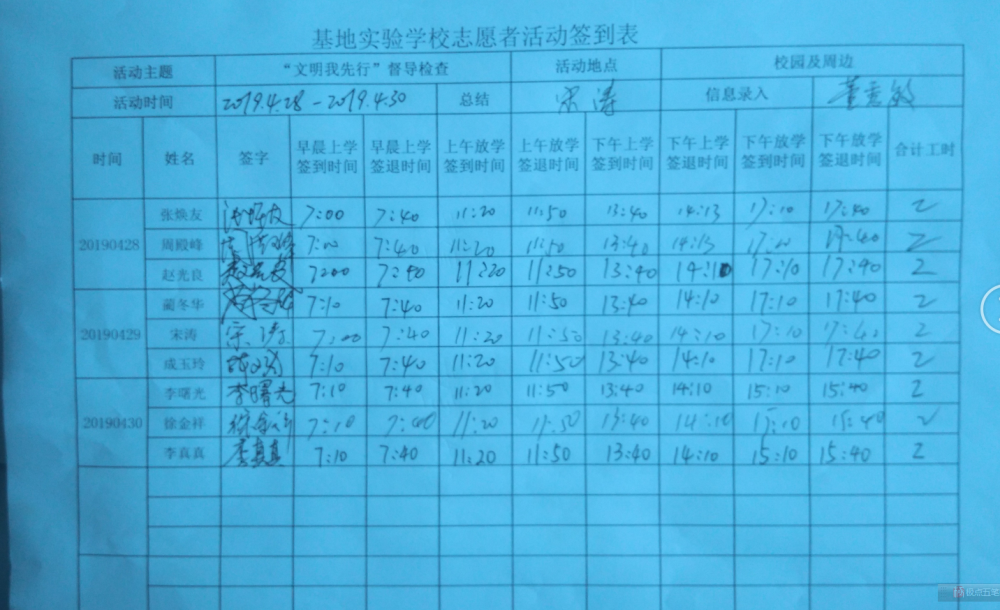 基地实验学校志愿者活动签到表
活动主题 “文明我先行”督导检查 活动地点 校园及周边
活动时间 2019.4.28-2019.4.30 总结 宋涛 信息录入
时间 姓名 签字 早晨上学签到时间 早晨上学签退时间 上午放学签到时间 上午放学签退时间 下午上学签到时间 下午上学签退时间 下午放学签到时间 下午放学签退时间 合计工时
20190428 张焕友 张焕友 7:00 7:40 11:20 11:50 13:40 14:13 17:10 17:40 2
周殿峰 周殿峰 7:00 7:40 11:20 11:50 13:40 14:13 17:10 17:40 2
赵光良 赵光良 7:00 7:40 11:20 11:50 13:40 14:10 17:10 17:40 2
20190429 蔺冬华 7:10 7:40 11:20 11:50 13:40 14:10 17:10 17:40 2
宋涛 宋涛 7:00 7:40 11:20 11:50 13:40 14:10 17:10 17:40 2
成玉玲 7:10 7:40 11:20 11:50 13:40 14:10 17:10 17:40 2
20190430 李曙光 李曙光 7:10 7:40 11:20 11:50 13:40 14:10 15:10 15:40 2
徐金祥 徐金祥 7:10 7:40 11:20 11:50 13:40 14:10 15:10 15:40 2
李真真 李真真 7:10 7:40 11:20 11:50 13:40 14:10 15:10 15:40 2
极点五笔